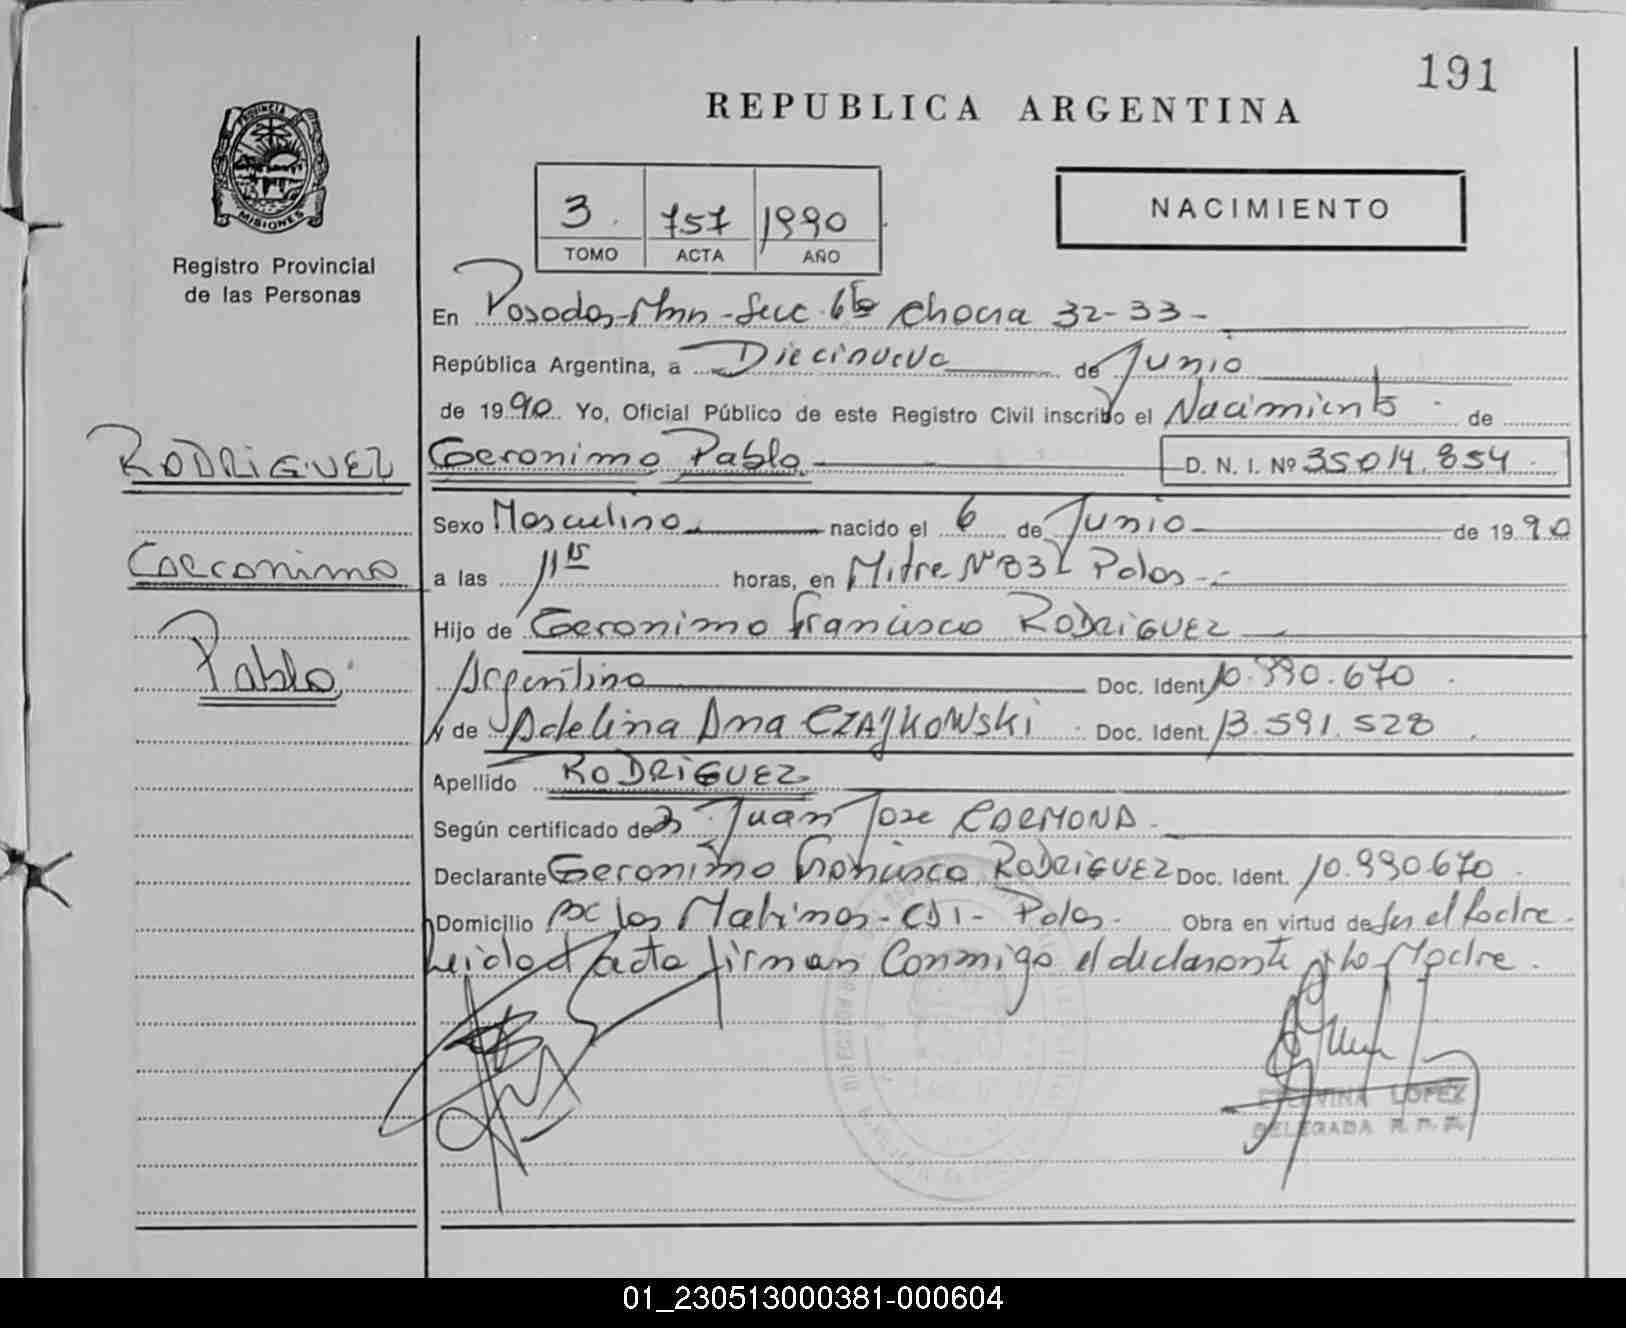 191
REPUBLICA ARGENTINA
PROVINCIA DE
MISIONES
Registro Provincial
de las Personas
3 757 1990
TOMO ACTA AÑO
NACIMIENTO
En Posadas-Mnes-Secc. 6ta chacra 32-33-
República Argentina, a Diecinueve de Junio
de 1990 Yo, Oficial Público de este Registro Civil inscribo el Nacimiento de
RODRIGUEZ
Geronimo Pablo D. N. I. Nº 35.014.854
Sexo Masculino nacido el 6 de Junio de 1990
Geronimo
a las 11 15 horas, en Mitre Nº Pdas-
Hijo de Geronimo Francisco RODRIGUEZ
Pablo
Argentino Doc. Ident. 10.990.670
y de Adelina Ana CZAJKOWSKI Doc. Ident. 13.591.528
Apellido RODRIGUEZ
Según certificado de Juan Jose CARMONA
Declarante Geronimo Francisco RODRIGUEZ Doc. Ident. 10.990.670
Domicilio los - Pdas- Obra en virtud de ser el Padre
Leida el Acta firman Conmigo el declarante y la Madre.
LOPEZ
DELEGADA
01_230513000381-000604